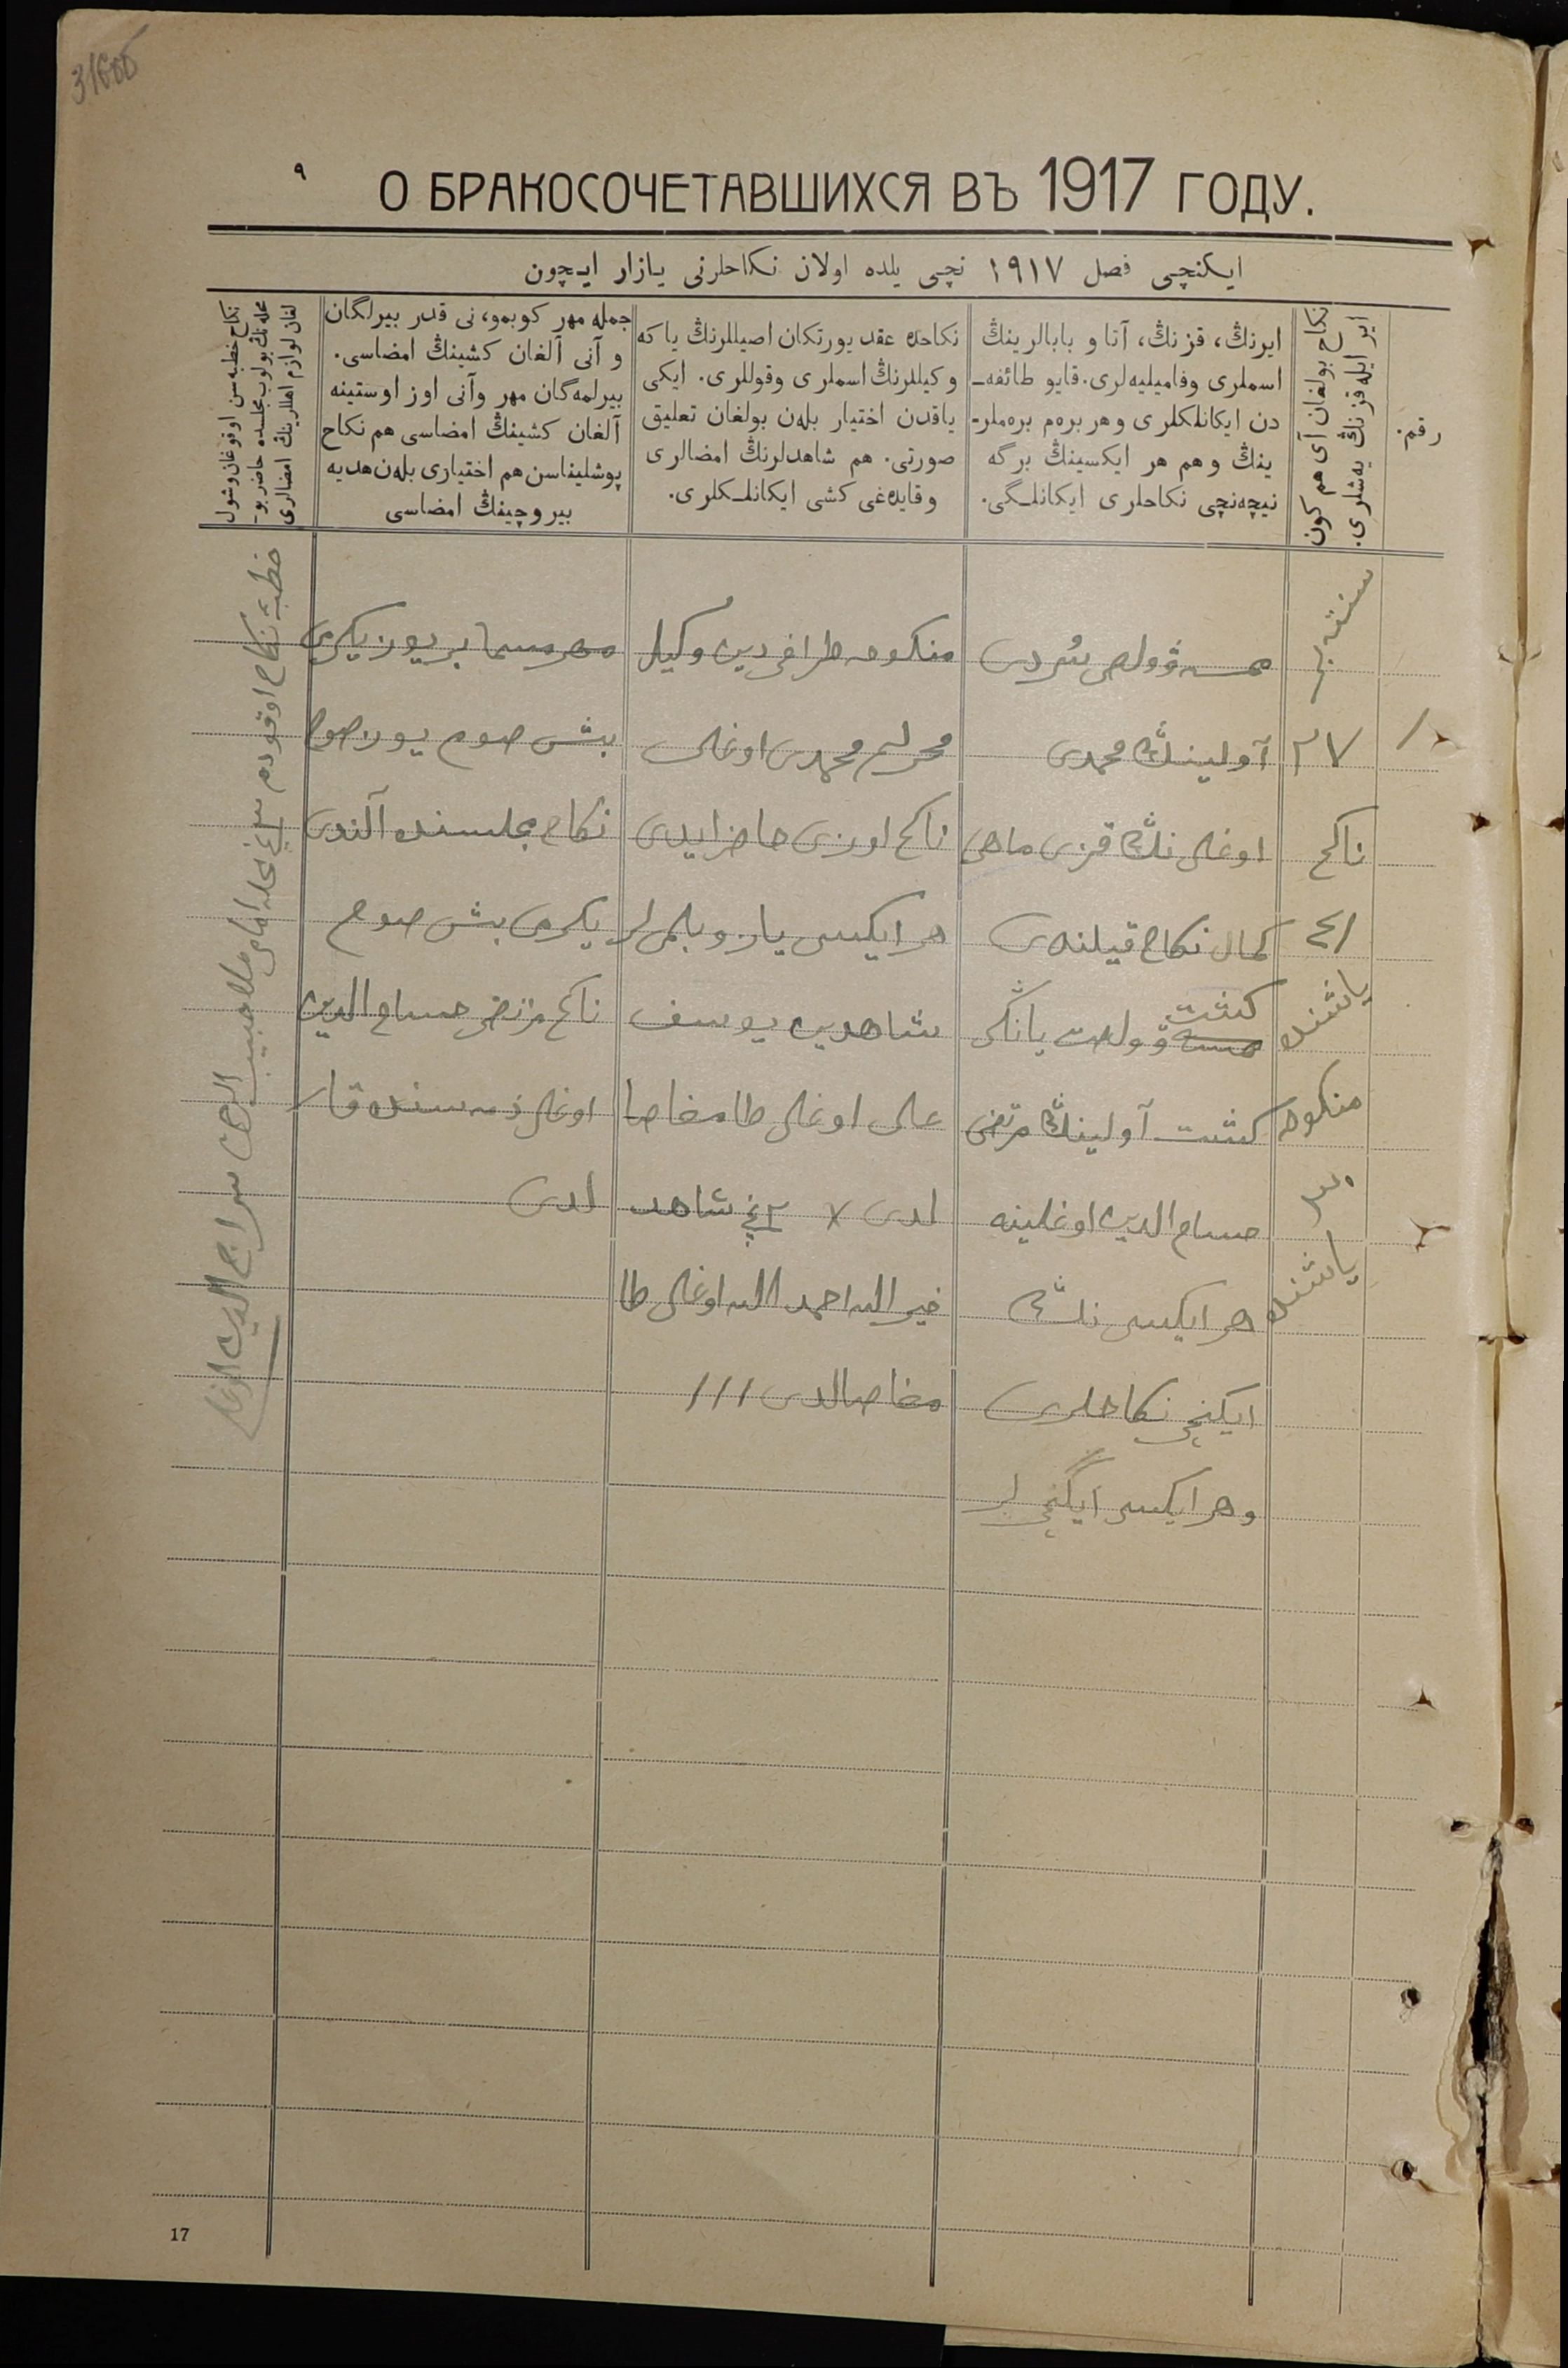 31 об
٩
О БРАКОСОЧЕТАВШИХСЯ ВЪ 1917 ГОДУ.
ایکنچی فصل ١٩١٧ نچی یلده اولان نکاحلرنی یازار ایچون
رقم.
نکاح بولغان آی هم کون
ایر ایله قزنڭ یه‌شلری.
ایرنڭ، قزنڭ، آتا و بابالرینڭ
اسملری وفامیلیه‌لری. قایو طائفه‌ـ
دن ایکانلکلری و هر بره‌م بره‌ملرـ
ینڭ و هم هر ایکسینڭ برگه
نیچه‌نچی نکاحلری ایکانلـگی.
نکاحده عقد یورتکان اصیللرنڭ یا که
وکیللرنڭ اسملری وقوللری. ایکی
یاقدن اختیار بله‌ن بولغان تعلیق
صورتی. هم شاهدلرنڭ امضالری
وقایده‌غی کشی ایکانلـکلری.
جمله مهر کوبمو، نی قدر بیرلگان
و آنی آلغان کشینڭ امضاسی.
بیرلمه‌گان مهر وآنی اوز اوستینه
آلغان کشینڭ امضاسی هم نکاح
پوشلیناسن هم اختیاری بله‌ن هدیه
بیروچینڭ امضاسی
نکاح خطبه‌سن اوقوغان وشول
محله‌نڭ بولوب مجلسده حاضر بوـ
لغان لوازم اهللرینڭ امضالری
١
٢٧
ناکح
٤١
یاشنده
منکوحه
یاشنده
آولینڭ محمدی
اوغلی نڭ قزی ماهی
کمال نکاح قیلندی
کشت
آولینڭ مرتضی
حسام الدین اوغلینه
هر ایکیسی نڭ
ایکنچی نکاحلری
و هر ایکیسی ایکنچی لر
منکوحه طرافی دین وکیل
محمدی اوغلی
ناکح اوزی حاضر ایدی
هر ایکیسی یازو بلمی لر
شاهدین یوسف
علی اوغلی طامغا صا
لدی ٧ ٢نچی شاهد
خیرالله احمدالله اوغلی طا
مغا صالدی ///
مهر مسما بر یوز یکرمی
بش صوم یوز صوم
نکاح مجلسنده آلندی
یکرمی بش صوم
ناکح مرتضی حسام الدین
اوغلی ذمه سنده قا
لدی
خطبهٔ نکاح اوقودم
سراج الدین اوغلی
17